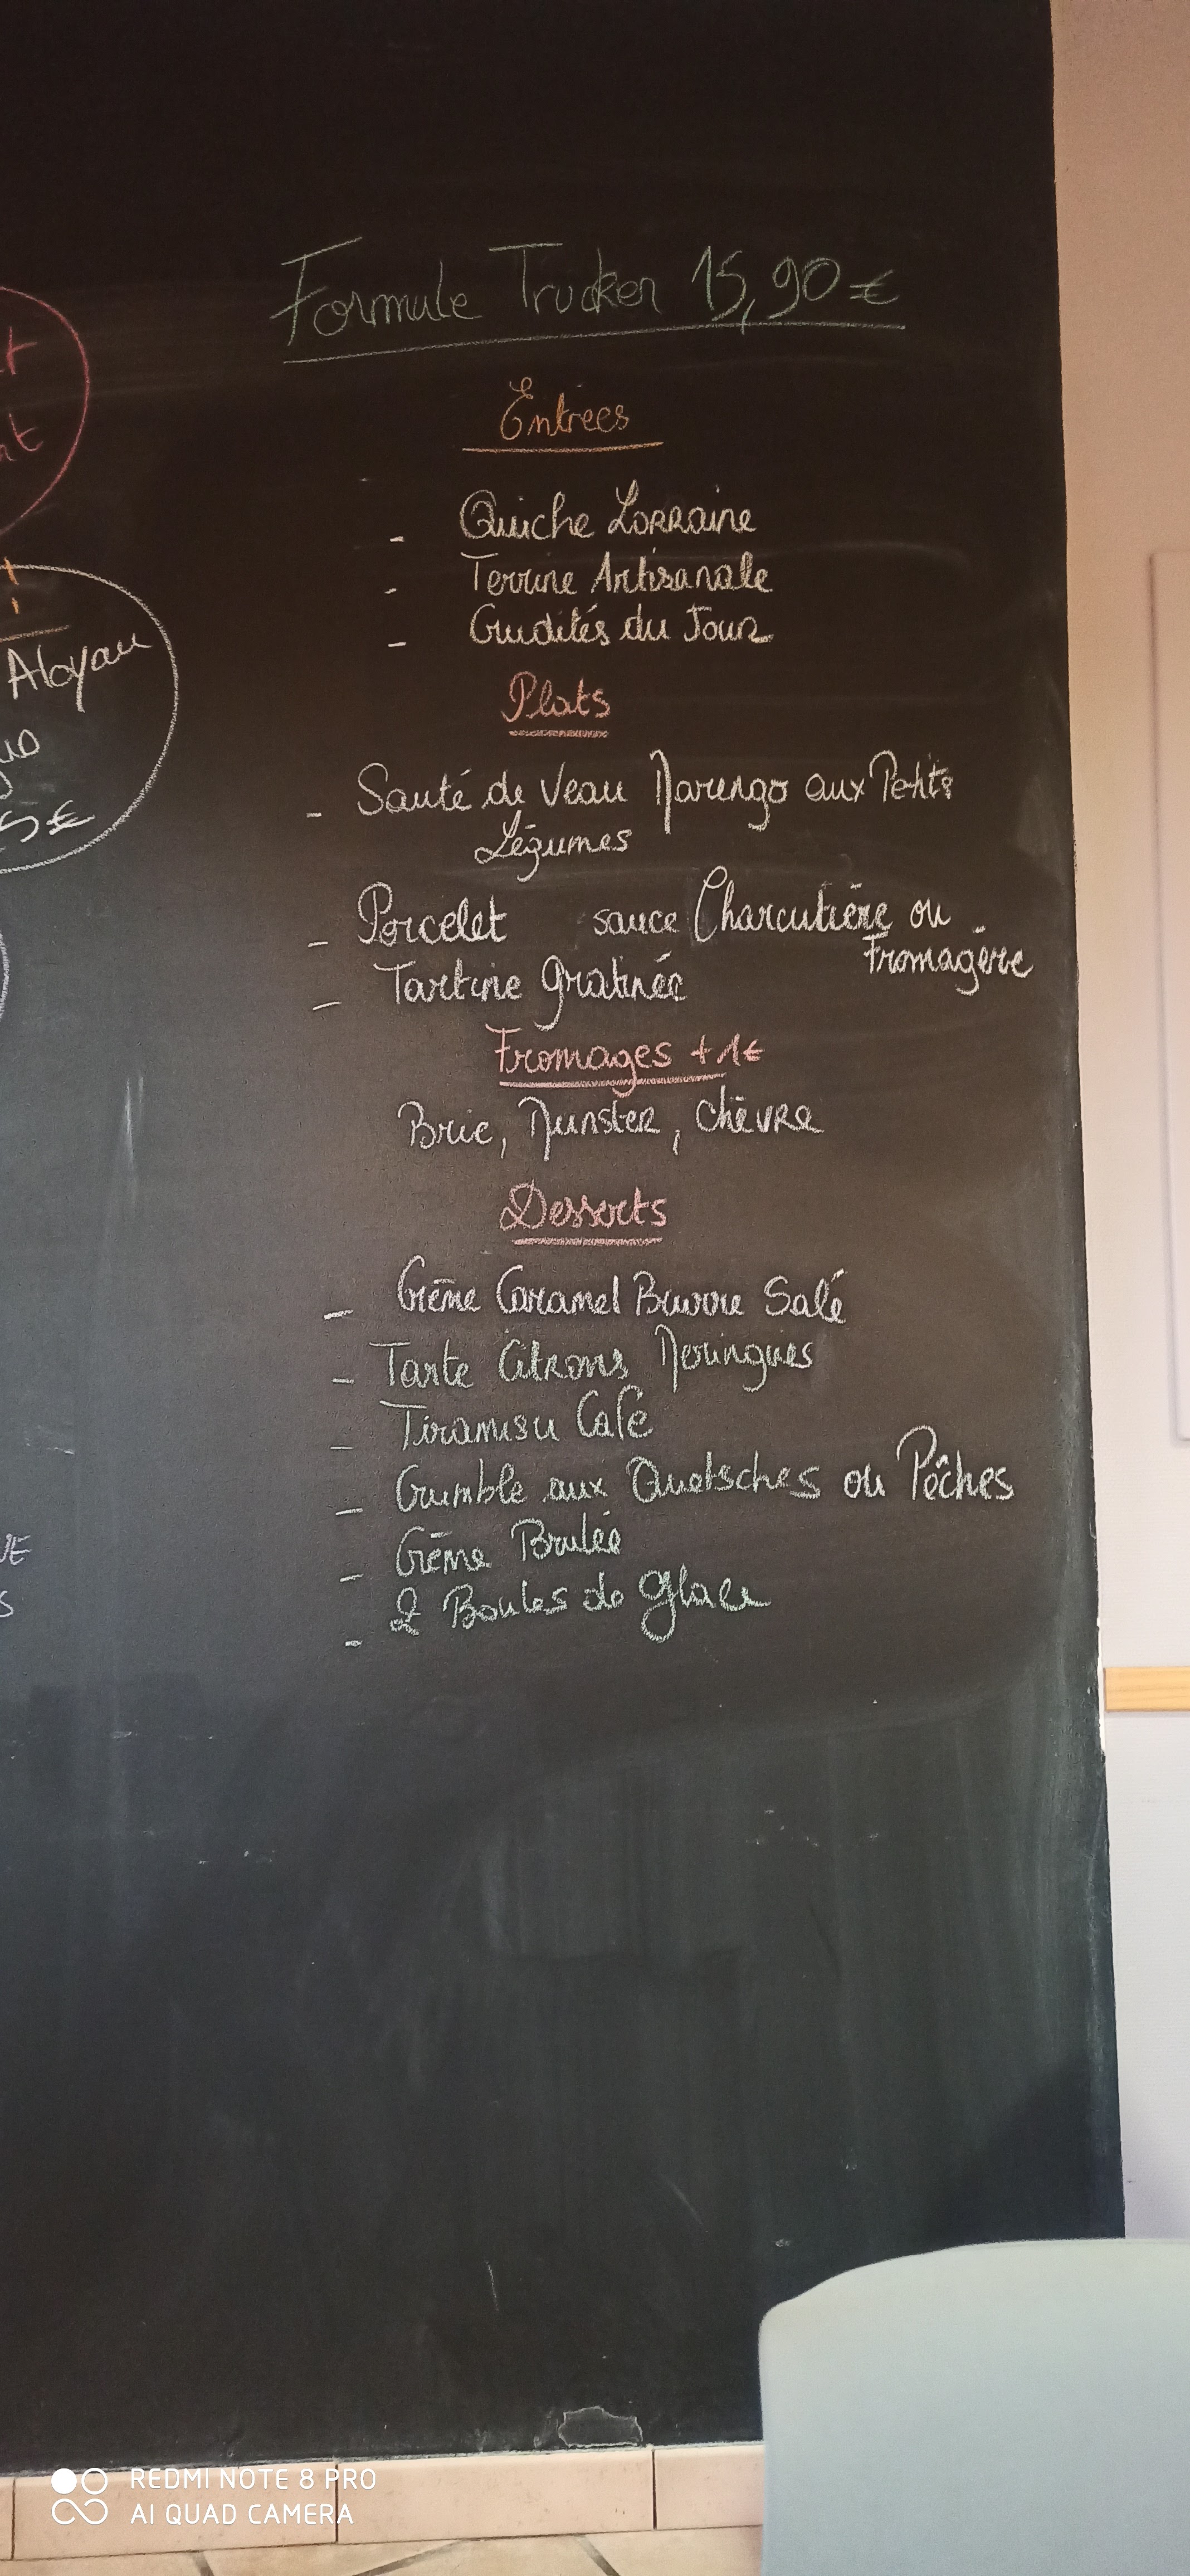 Formule Trucker 15,90 €
Entrées
- Quiche Lorraine
- Terrine Artisanale
- Crudités du Jour
Plats
- Sauté de Veau Marengo aux Petits
Légumes
- Porcelet sauce Charcutière ou
Fromagère
- Tartine gratinée
Fromages + 1€
Brie, Munster, Chèvre
Desserts
- Crème Caramel Beurre Salé
- Tarte Citrons Meringues
- Tiramisu Café
- Crumble aux Quetsches ou Pêches
- Crème Brulée
- 2 Boules de glace
Aloyau
5€
REDMI NOTE 8 PRO
AI QUAD CAMERA